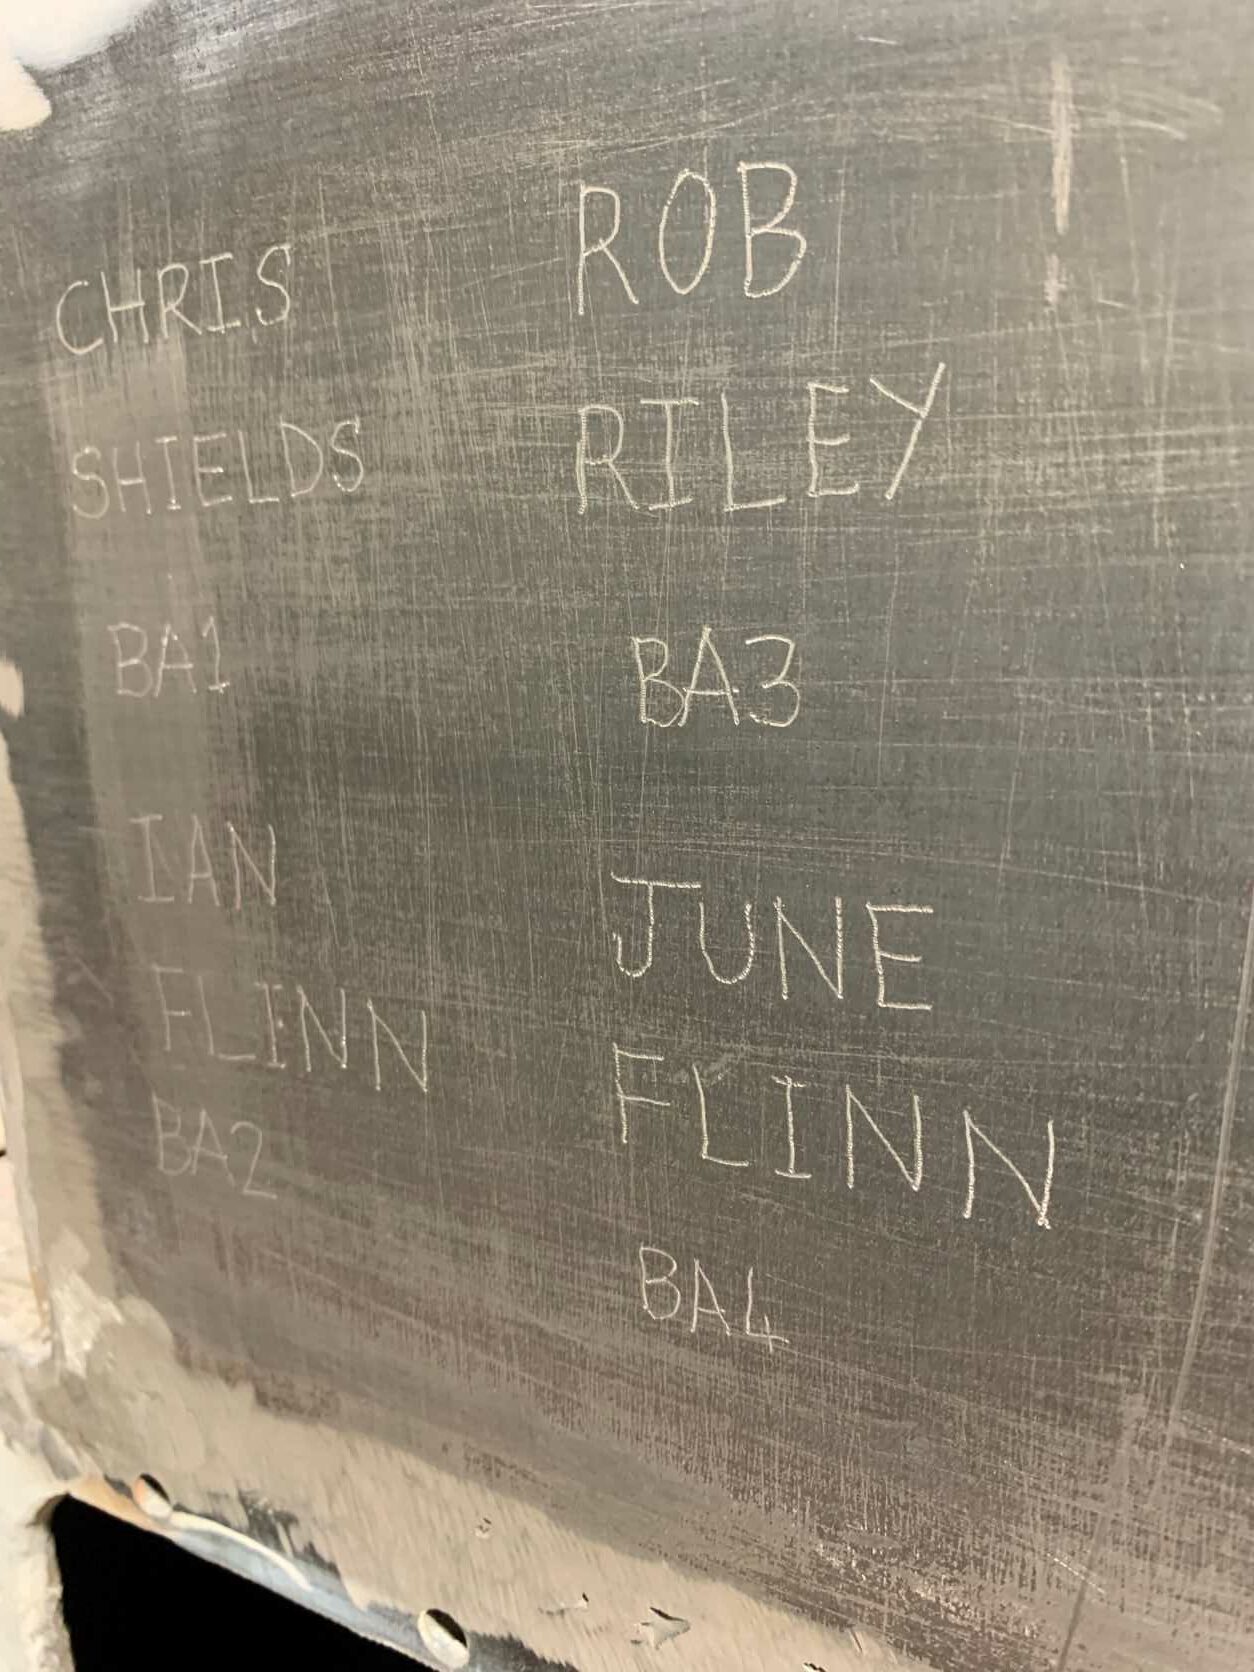 CHRIS
SHIELDS
BA1
IAN
FLINN
BA2
ROB
RILEY
BA3
JUNE
FLINN
BA4